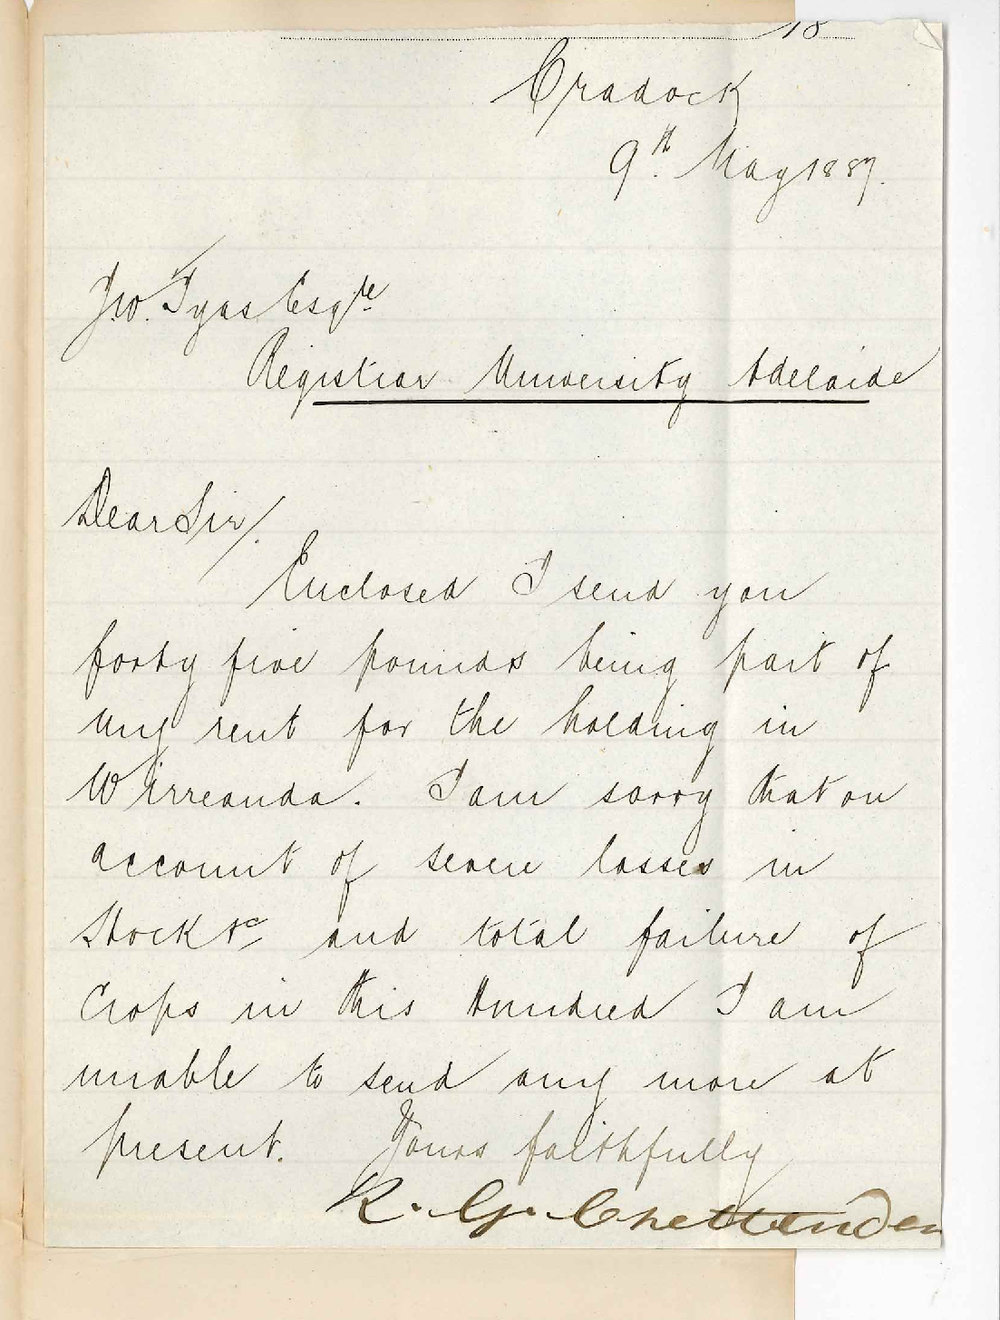 18
Cradock
9th May 1887.
J.W. Tyas Esqre
Registrar University Adelaide
Dear Sir/.
Enclosed I send you
forty five pounds being part of
my rent for the holding in
Wirreanda. I am sorry that on
account of severe losses in
Stock &c and total failure of
Crops in this Hundred I am
unable to send any more at
present. Yours faithfully
R. G. Chettenden